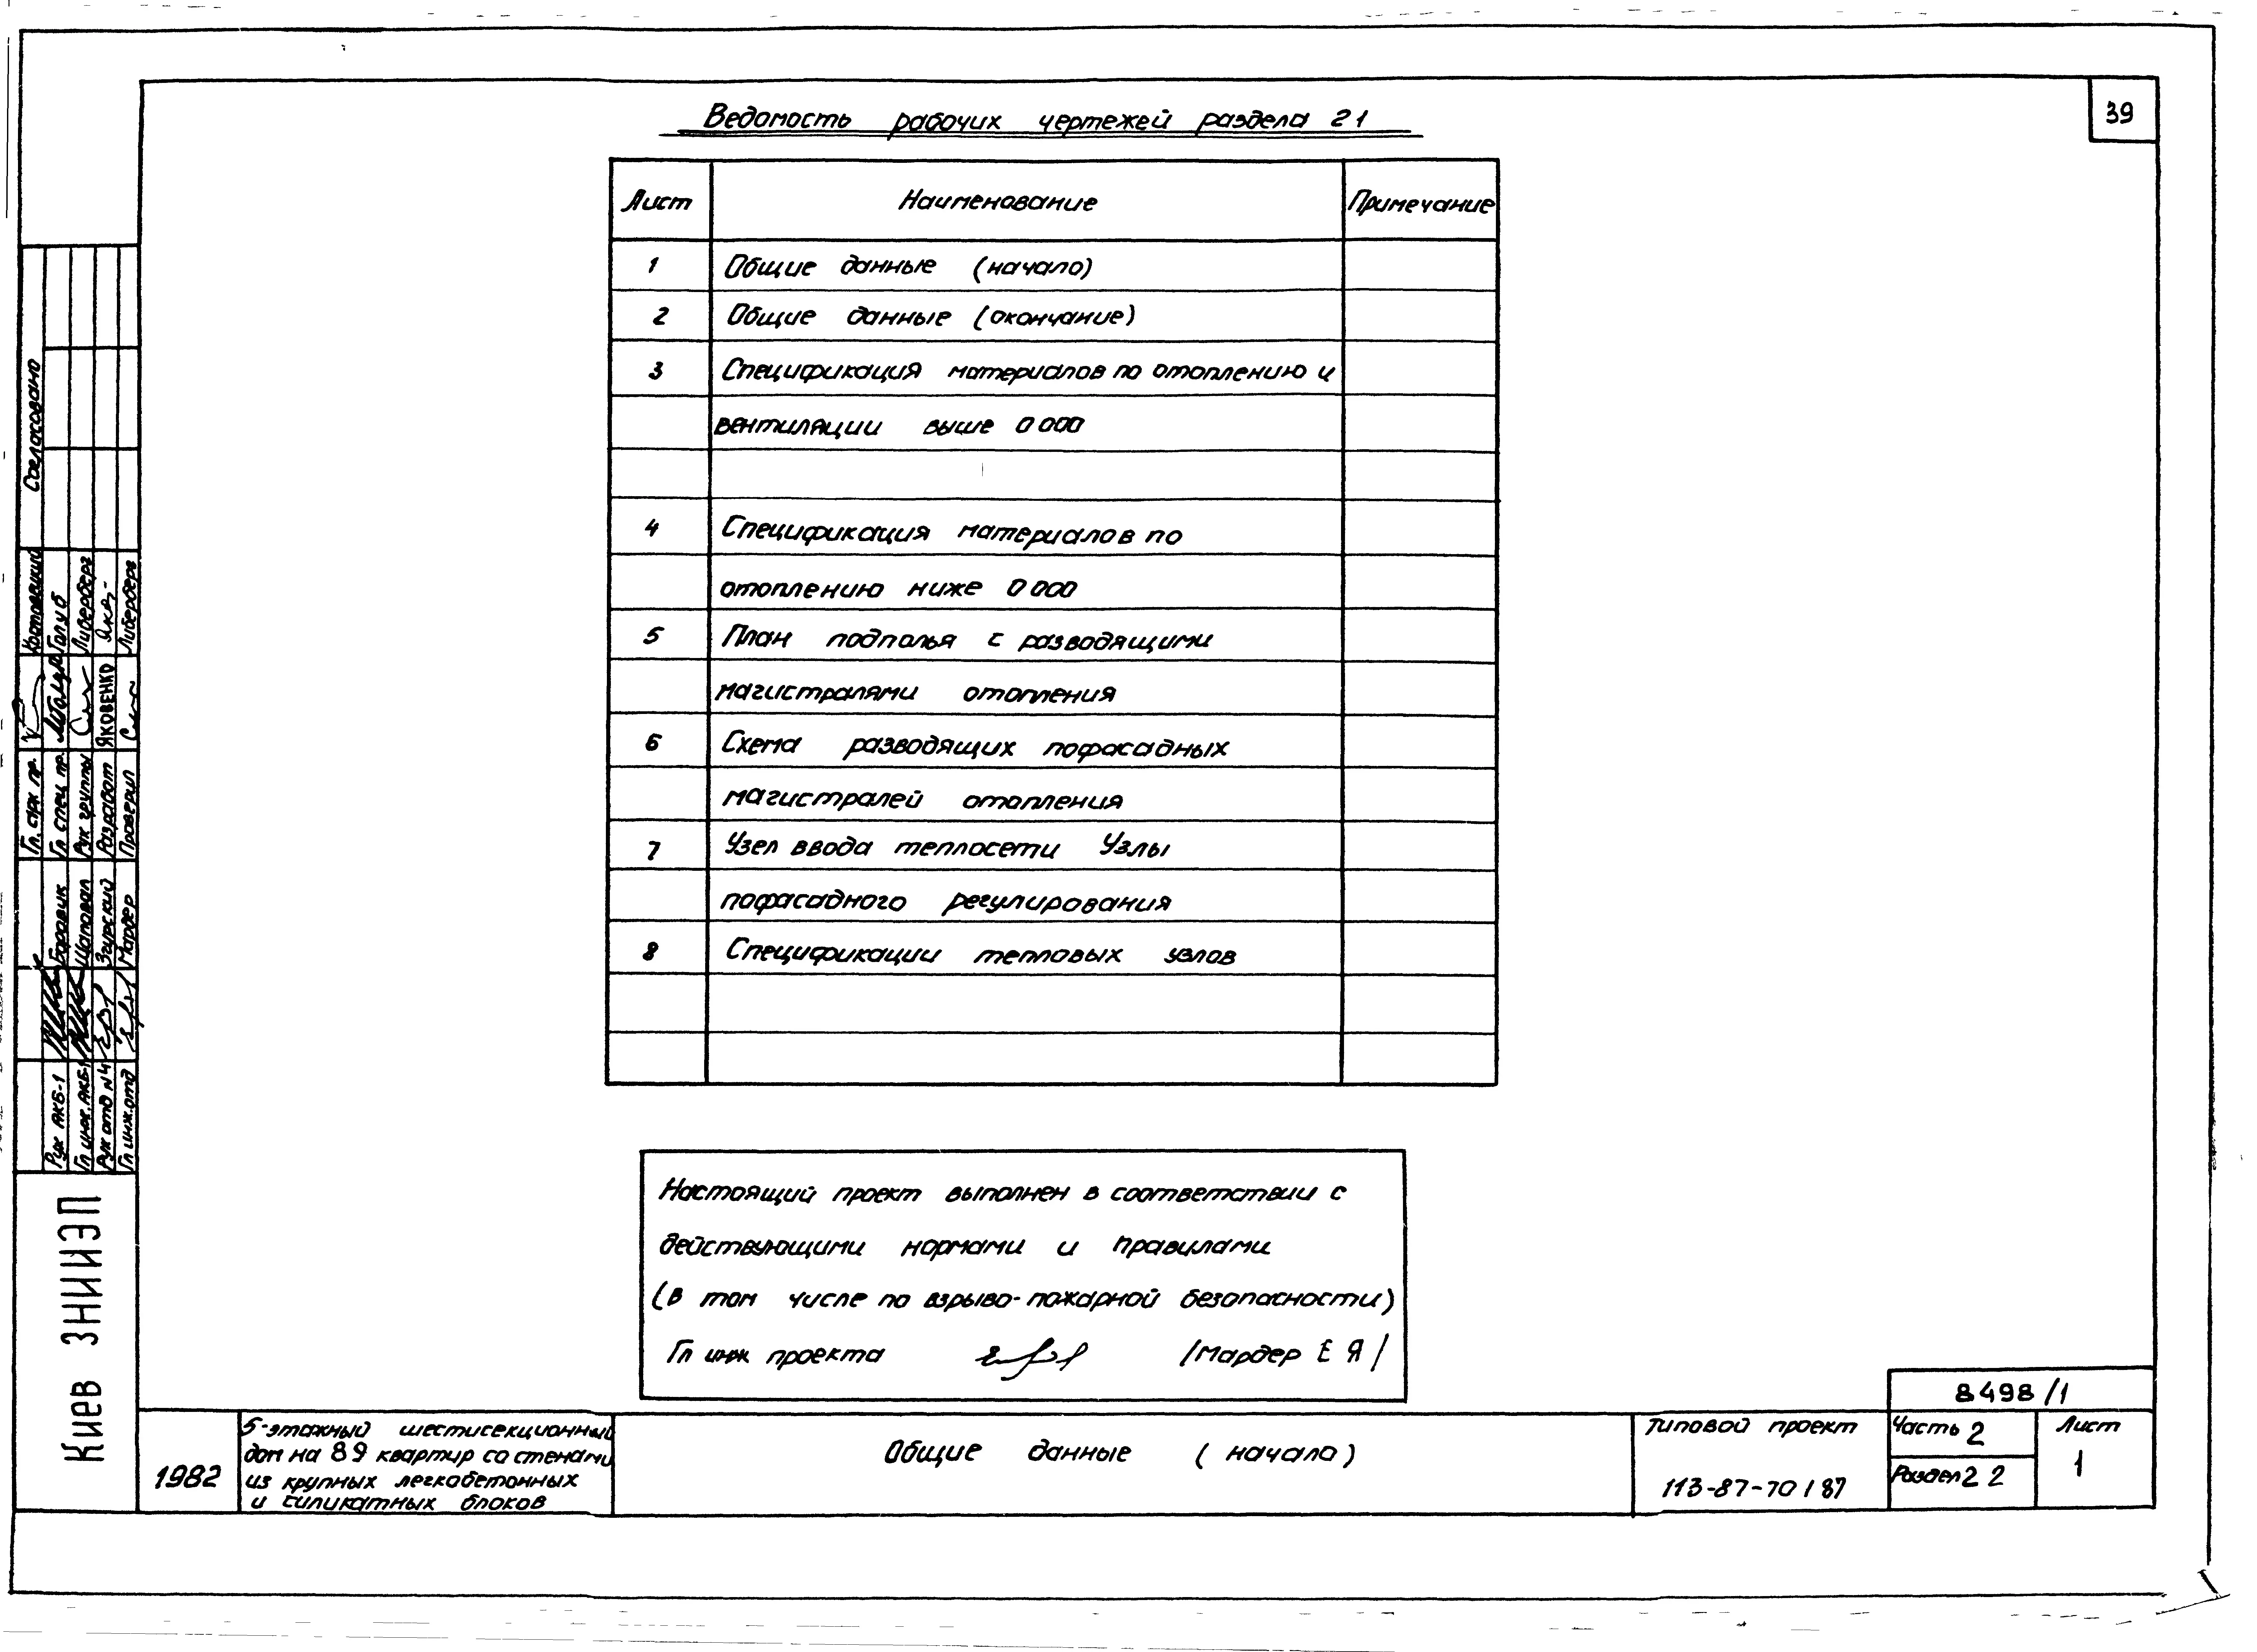 39
Ведомость рабочих чертежей раздела 21
Лист Наименование Примечание
1 Общие данные (начало)
2 Общие данные (окончание)
3 Спецификация материалов по отоплению и
вентиляции выше 0 000
4 Спецификация материалов по
отоплению ниже 0 000
5 План подполья с разводящими
магистралями отопления
6 Схема разводящих пофасадных
магистралей отопления
7 Узел ввода теплосети Узлы
пофасадного регулирования
8 Спецификации тепловых узлов
Настоящий проект выполнен в соответствии с
действующими нормами и правилами
(в том числе по взрыво-пожарной безопасности)
Гл инж проекта /Мардер Е Я/
8498/1
1982
5-этажный шестисекционный
дом на 89 квартир со стенами
из крупных легкобетонных
и силикатных блоков
Общие данные (начало)
Типовой проект
113-87-70/87
Часть 2
Раздел 2 2
Лист
1
Киев ЗНИИЭП
Согласовано
Рук АКБ-1 Боровик Гл спец пр. Голуб
Гл инж. АКБ-1 Шаповал Рук группы Либерберг
Рук отд N4 Згурский Разработ ЯКОВЕНКО
Гл инж.отд Мардер Проверил Либерберг